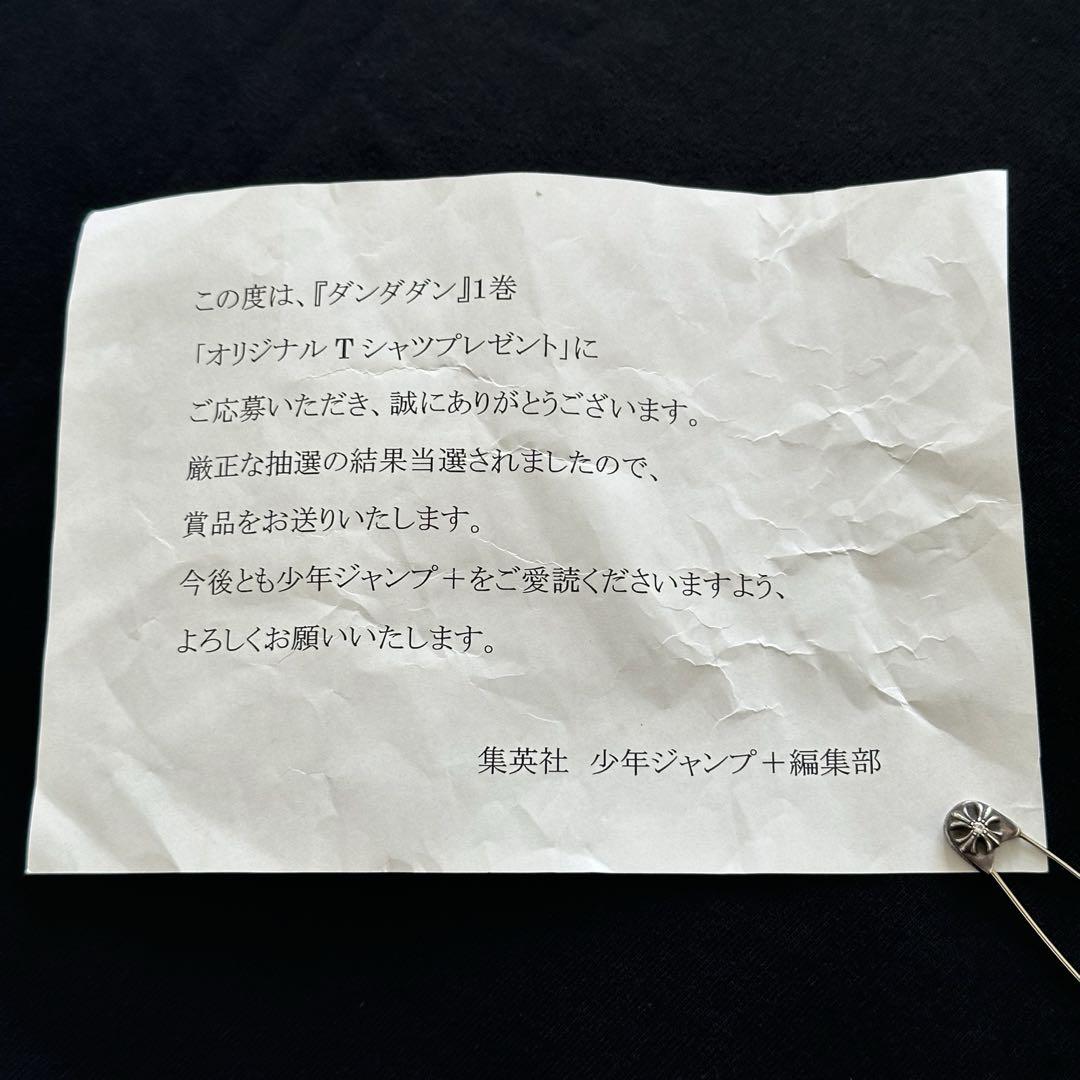 この度は、『ダンダダン』1巻
「オリジナル T シャツプレゼント」に
ご応募いただき、誠にありがとうございます。
厳正な抽選の結果当選されましたので、
賞品をお送りいたします。
今後とも少年ジャンプ＋をご愛読くださいますよう、
よろしくお願いいたします。
集英社　少年ジャンプ＋編集部